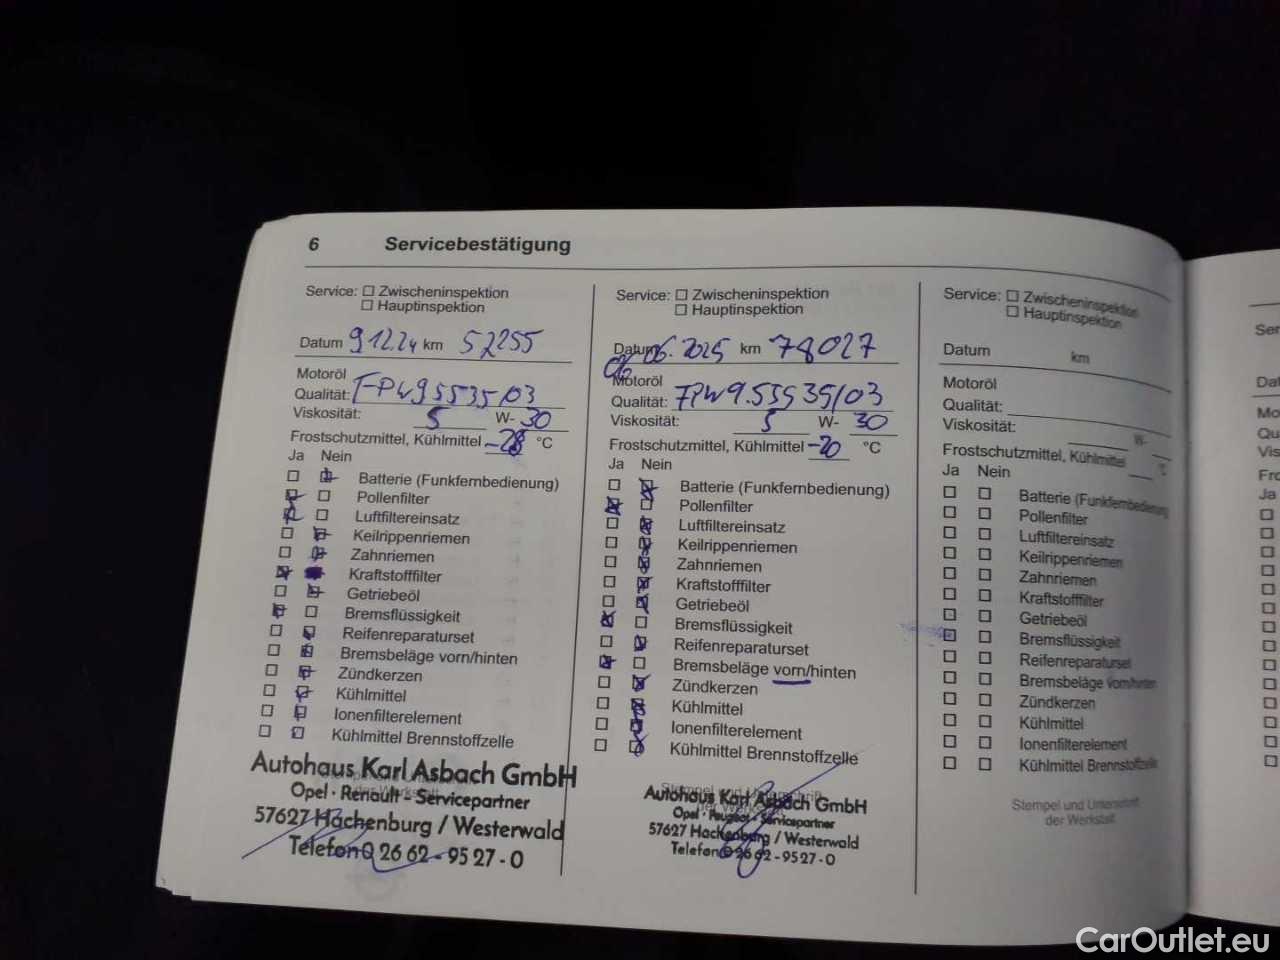 6 Servicebestätigung
Service: Zwischeninspektion
Hauptinspektion
Datum 9.12.24 km 52255
Motoröl
Qualität: FPW9.55535/03
Viskosität: 5 W-30
Frostschutzmittel, Kühlmittel -28 °C
Ja Nein
Batterie (Funkfernbedienung)
Pollenfilter
Luftfiltereinsatz
Keilrippenriemen
Zahnriemen
Kraftstofffilter
Getriebeöl
Bremsflüssigkeit
Reifenreparaturset
Bremsbeläge vorn/hinten
Zündkerzen
Kühlmittel
Ionenfilterelement
Kühlmittel Brennstoffzelle
Autohaus Karl Asbach GmbH
Opel · Renault - Servicepartner
57627 Hachenburg / Westerwald
Telefon 0 26 62 - 95 27 - 0
Service: Zwischeninspektion
Hauptinspektion
Datum 06. 2025 km 78027
Motoröl
Qualität: FPW9.55535/03
Viskosität: 5 W- 30
Frostschutzmittel, Kühlmittel -20 °C
Ja Nein
Batterie (Funkfernbedienung)
Pollenfilter
Luftfiltereinsatz
Keilrippenriemen
Zahnriemen
Kraftstofffilter
Getriebeöl
Bremsflüssigkeit
Reifenreparaturset
Bremsbeläge vorn/hinten
Zündkerzen
Kühlmittel
Ionenfilterelement
Kühlmittel Brennstoffzelle
Stempel und Unterschrift
der Werkstatt
Autohaus Karl Asbach GmbH
Opel · Peugeot - Servicepartner
57627 Hachenburg / Westerwald
Telefon 0 26 62 - 95 27 - 0
Service: Zwischeninspektion
Hauptinspektion
Datum km
Motoröl
Qualität:
Viskosität: W-
Frostschutzmittel, Kühlmittel °C
Ja Nein
Batterie (Funkfernbedienung
Pollenfilter
Luftfiltereinsatz
Keilrippenriemen
Zahnriemen
Kraftstofffilter
Getriebeöl
Bremsflüssigkeit
Reifenreparaturset
Bremsbeläge vorn/hinten
Zündkerzen
Kühlmittel
Ionenfilterelement
Kühlmittel Brennstoffzelle
Stempel und Unterschrift
der Werkstatt
Ser
Dat
Mo
Qu
Vis
Fro
Ja
CarOutlet.eu